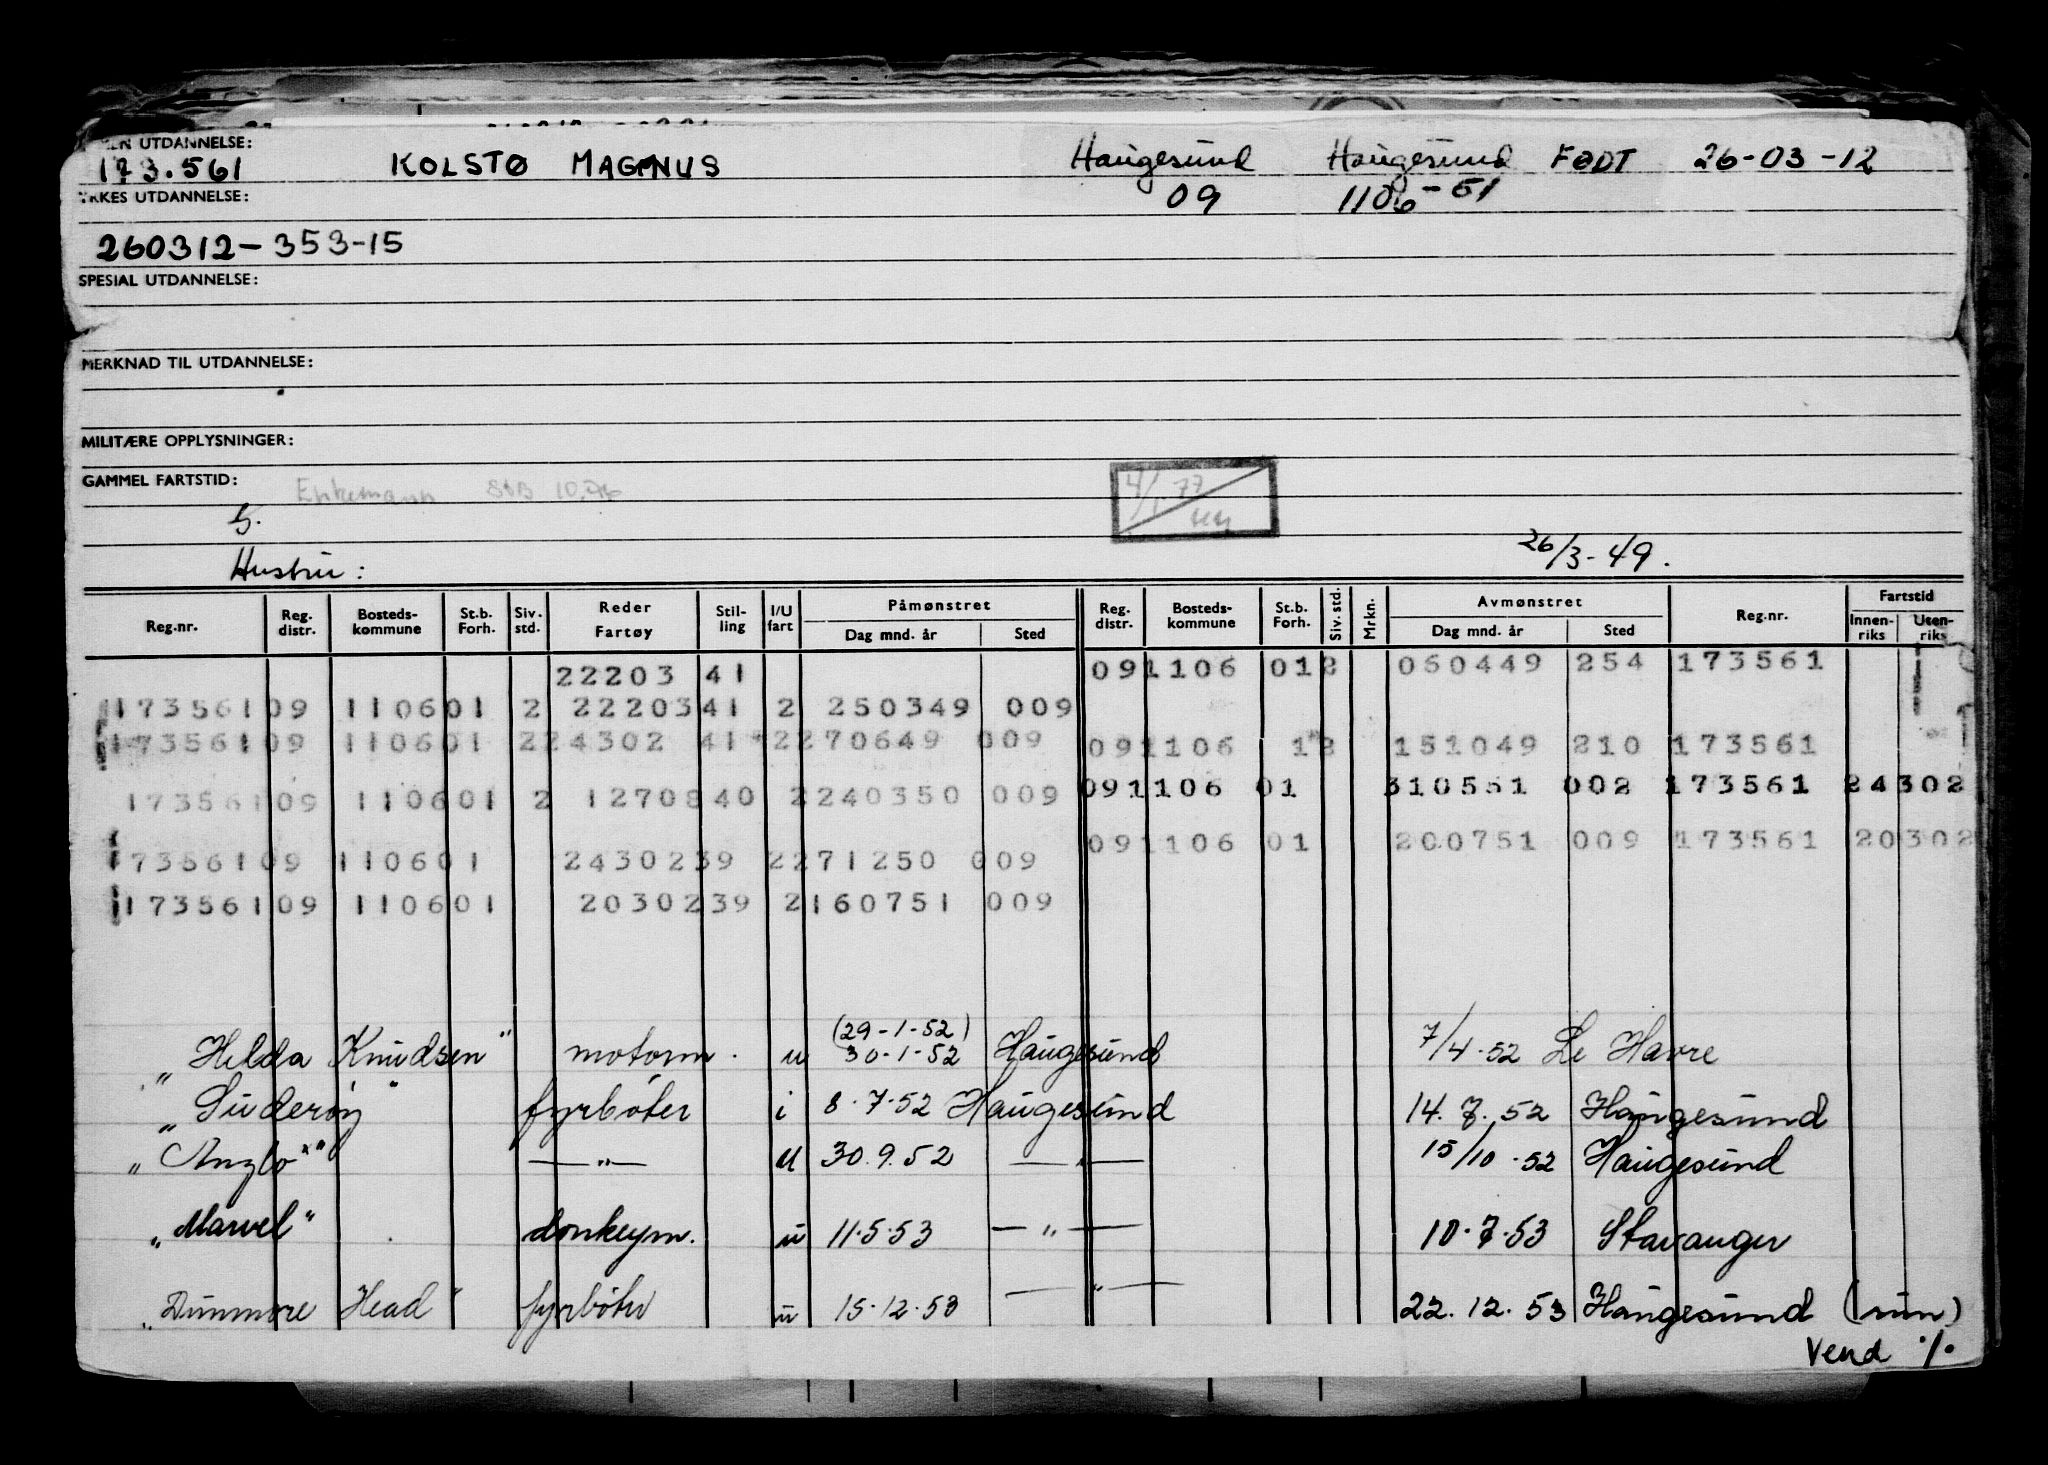 UTDANNELSE:
173.561 KOLSTØ MAGNUS Haugesund Haugesund FØDT 26-03-12
YRKES UTDANNELSE: 09 1106-51
260312-353-15
SPESIAL UTDANNELSE:
MERKNAD TIL UTDANNELSE:
MILITÆRE OPPLYSNINGER:
GAMMEL FARTSTID: Enkemann 10.76 4/1 77
G.
Hustru: 26/3-49.
Reg.nr. Reg. distr. Bosteds-kommune St.b. Forh. Siv. std. Reder Fartøy Stil-ling I/U fart Påmønstret Dag mnd. år Sted Reg. distr. Bosteds-kommune St.b. Forh. Siv. std. Mrkn. Avmønstret Dag mnd. år Sted Reg.nr. Fartstid Innen-riks Uten-riks
22203 41 091106 012 060449 254 173561
173561 09 1106 01 2 22203 41 2 250349 009
173561 09 1106 01 2 24302 41 2 270649 009 091106 1 2 151049 210 173561
173561 09 1106 01 2 12708 40 2 240350 009 091106 01 310551 002 173561 24302
173561 09 1106 01 24302 39 2 271250 009 091106 01 200751 009 173561 20302
173561 09 1106 01 20302 39 2 160751 009
(29-1-52)
"Hilda Knudsen" motorm. u 30-1-52 Haugesund 7/4.52 Le Havre
"Suderøy" fyrbøter i 8.7.52 Haugesund 14.7.52 Haugesund
"Anglo" —"— u 30.9.52 —"— 15/10.52 Haugesund
"Marvel" donkeym. u 11.5.53 —"— 10.7.53 Stavanger
"Dunmore Head" fyrbøter u 15.12.53 —"— 22.12.53 Haugesund (run)
Vend ./.